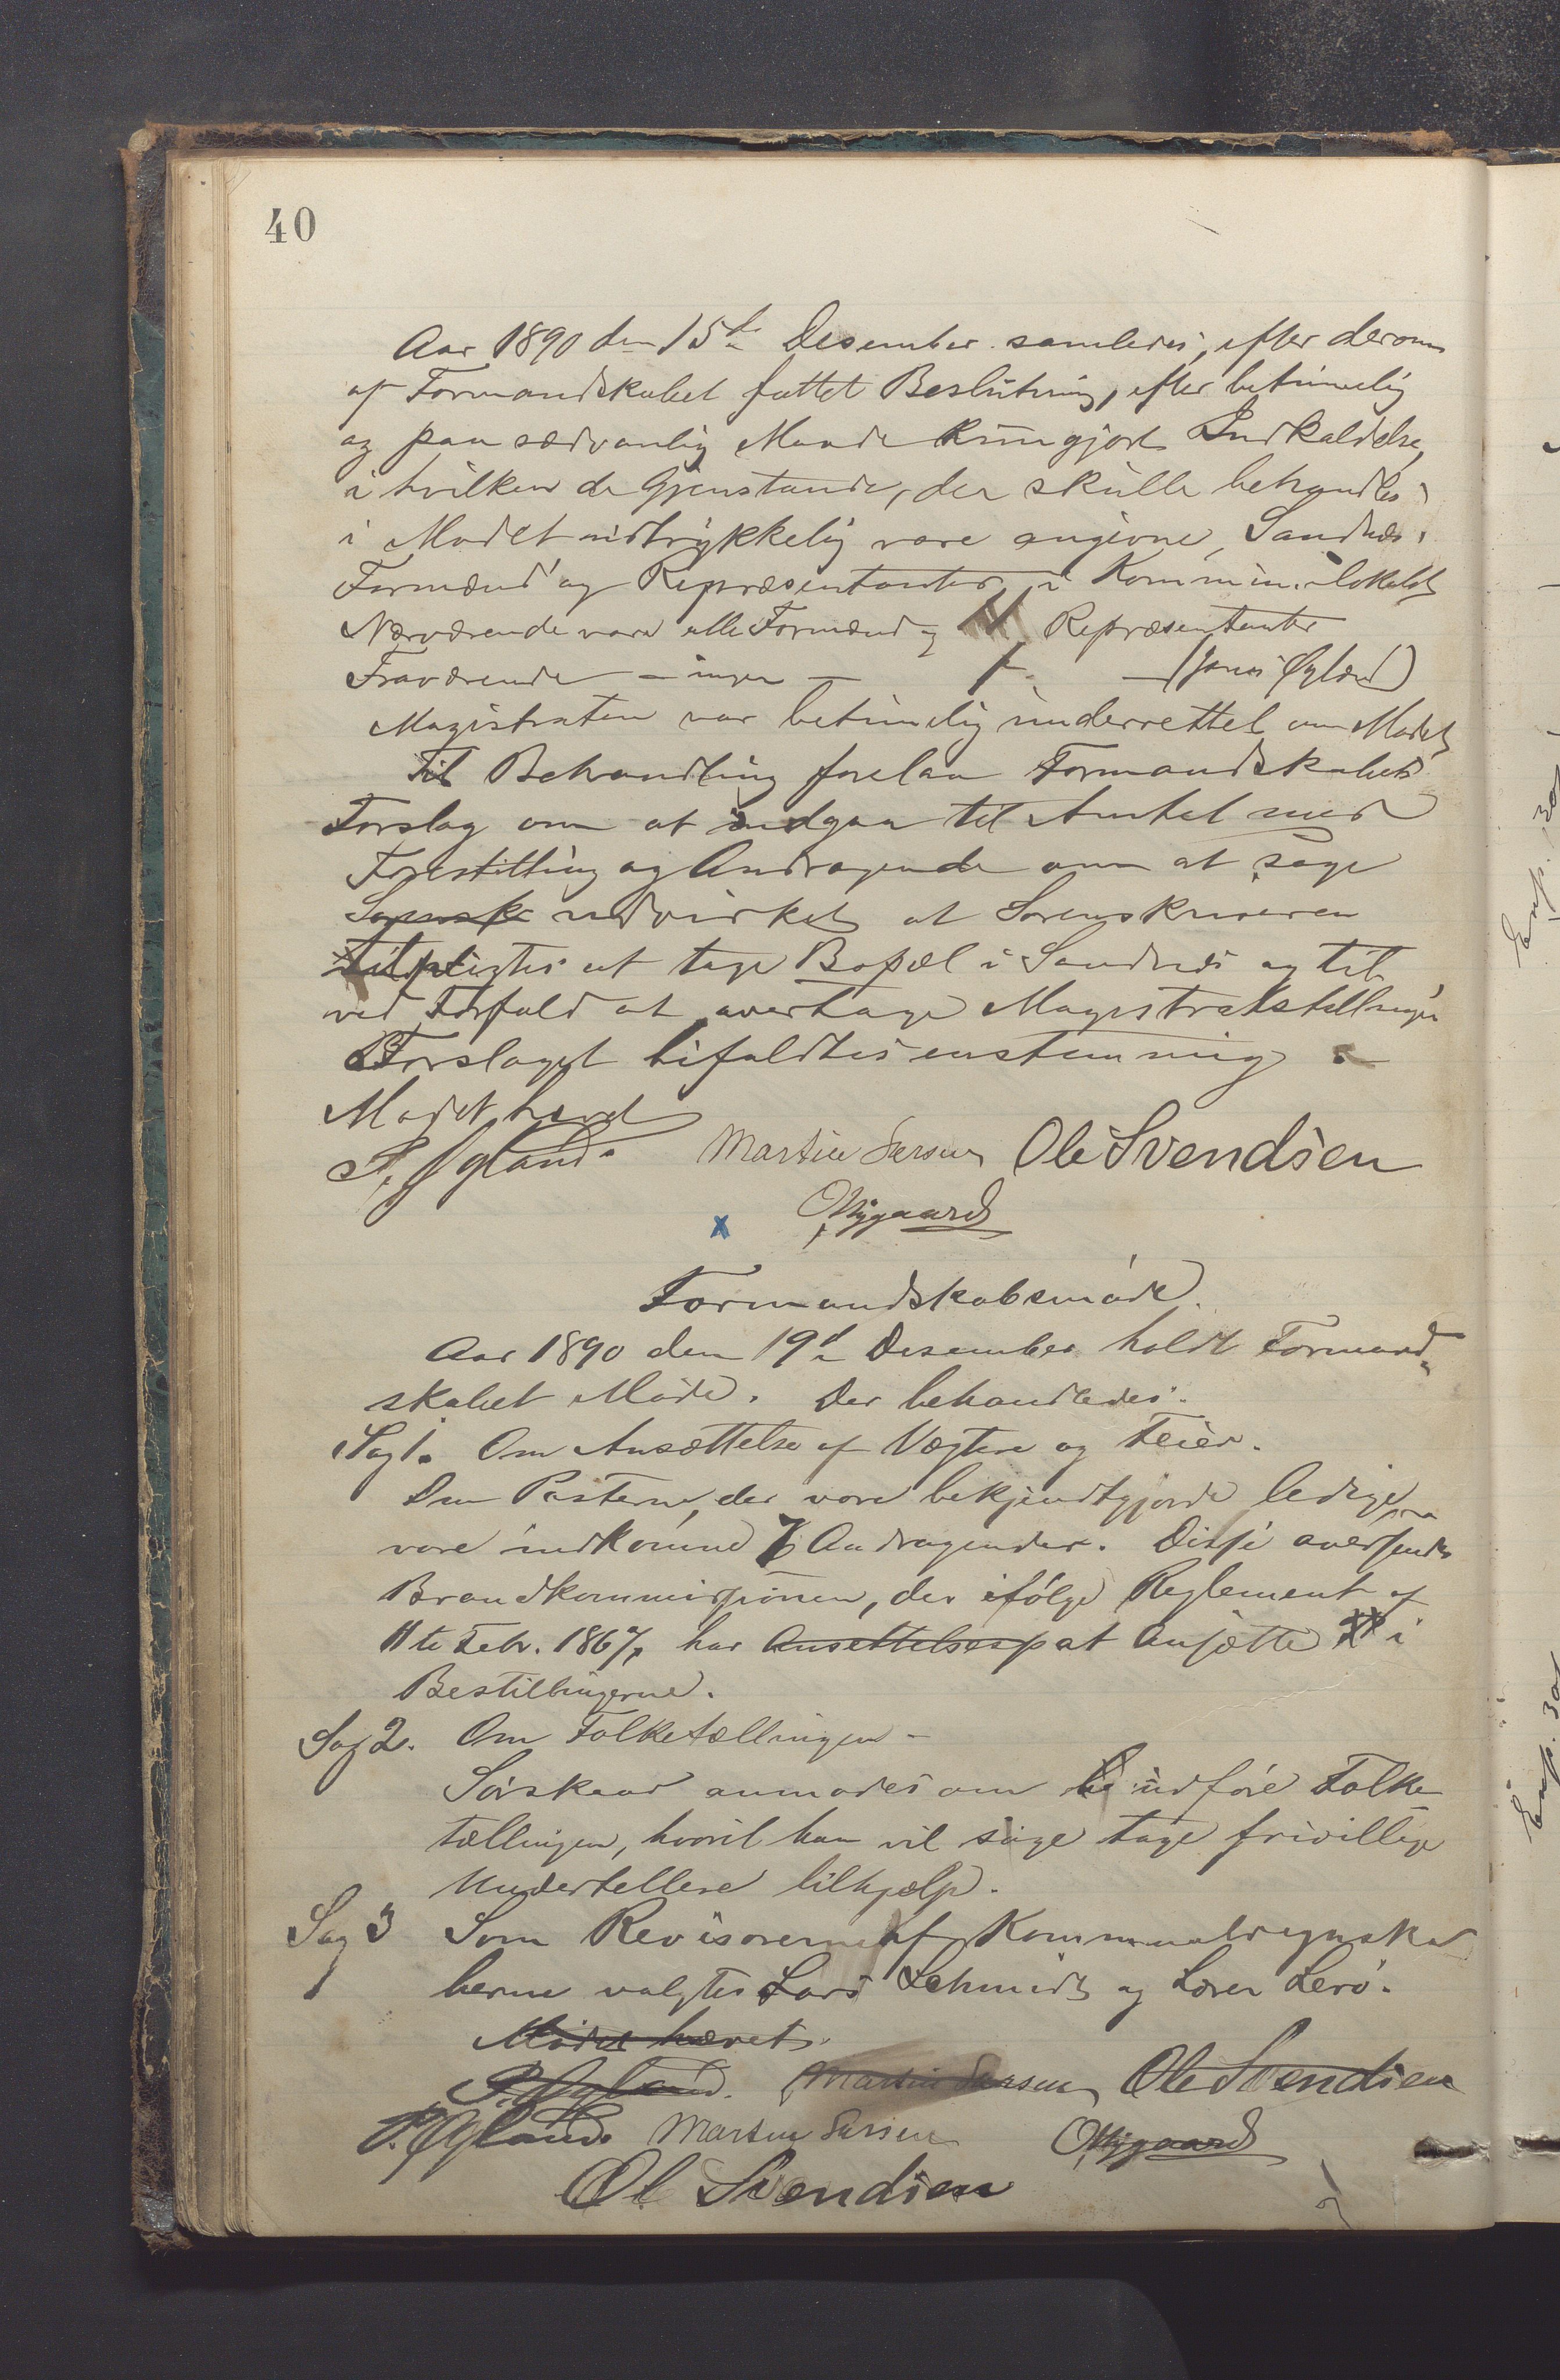 40
Aar 1890 den 15de Desember samledes, efter derom
af Formandskabet fattet Beslutning, efter betimelig
og paa sædvanlig Maade kungjort Indkaldelse,
i hvilken de Gjenstande, der skulle behandles
i Mødet udtrykkelig vare angivne, Sandnæs
Formænd og Repræsentanter i Kommunelokalet
Nærværende vare alle Formænd og Repræsentanter
Fraværende – ingen – 1 – (Jonas Øglænd)
Magistraten var betimelig underrettet om Mødet
Til Behandling forelaa Formandskabets
Forslag om at indgaa til Amtet med
Forestilling og Andragende om at søge
udvirket at Sorenskriveren
tilpligtes at tage Bopæl i Sandnæs og til
ved Forfald at overtage Magistratstillingen
Forslaget bifaldtes enstemmig
Mødet hævet
Øgland. Martin Ole Svendsen
O Nygaard
x
Formandskabsmøde.
Aar 1890 den 19de Desember holdt Formand-
skabet Møde. Der behandledes:
Sag 1. Om Ansættelse af Vægtere og Feier.
Om Posterne, der vare bekjendtgjorde ledige,
vare indkomne Andragender. Disse oversendes
Brandkommissionen, der ifølge Reglement af
11te Febr. 1867, har Ansettelsesp at ansætte i
Bestillingerne.
Sag 2. Om Folketællingen –
Sørskaar anmodes om udføre Folke
tællingen, hvortil han vil søge tage frivillige
Undertellere tilhjælp.
Sag 3 Som Revisorerne af Kommuneregnska
berne valgtes Lars Schmidt og Lærer Lerø.
Mødet hævet.
Øgland. Martin Ole Svendsen
Øgland. Martin O Nygaard
Ole Svendsen
Exp. 30/
Exp. 30/